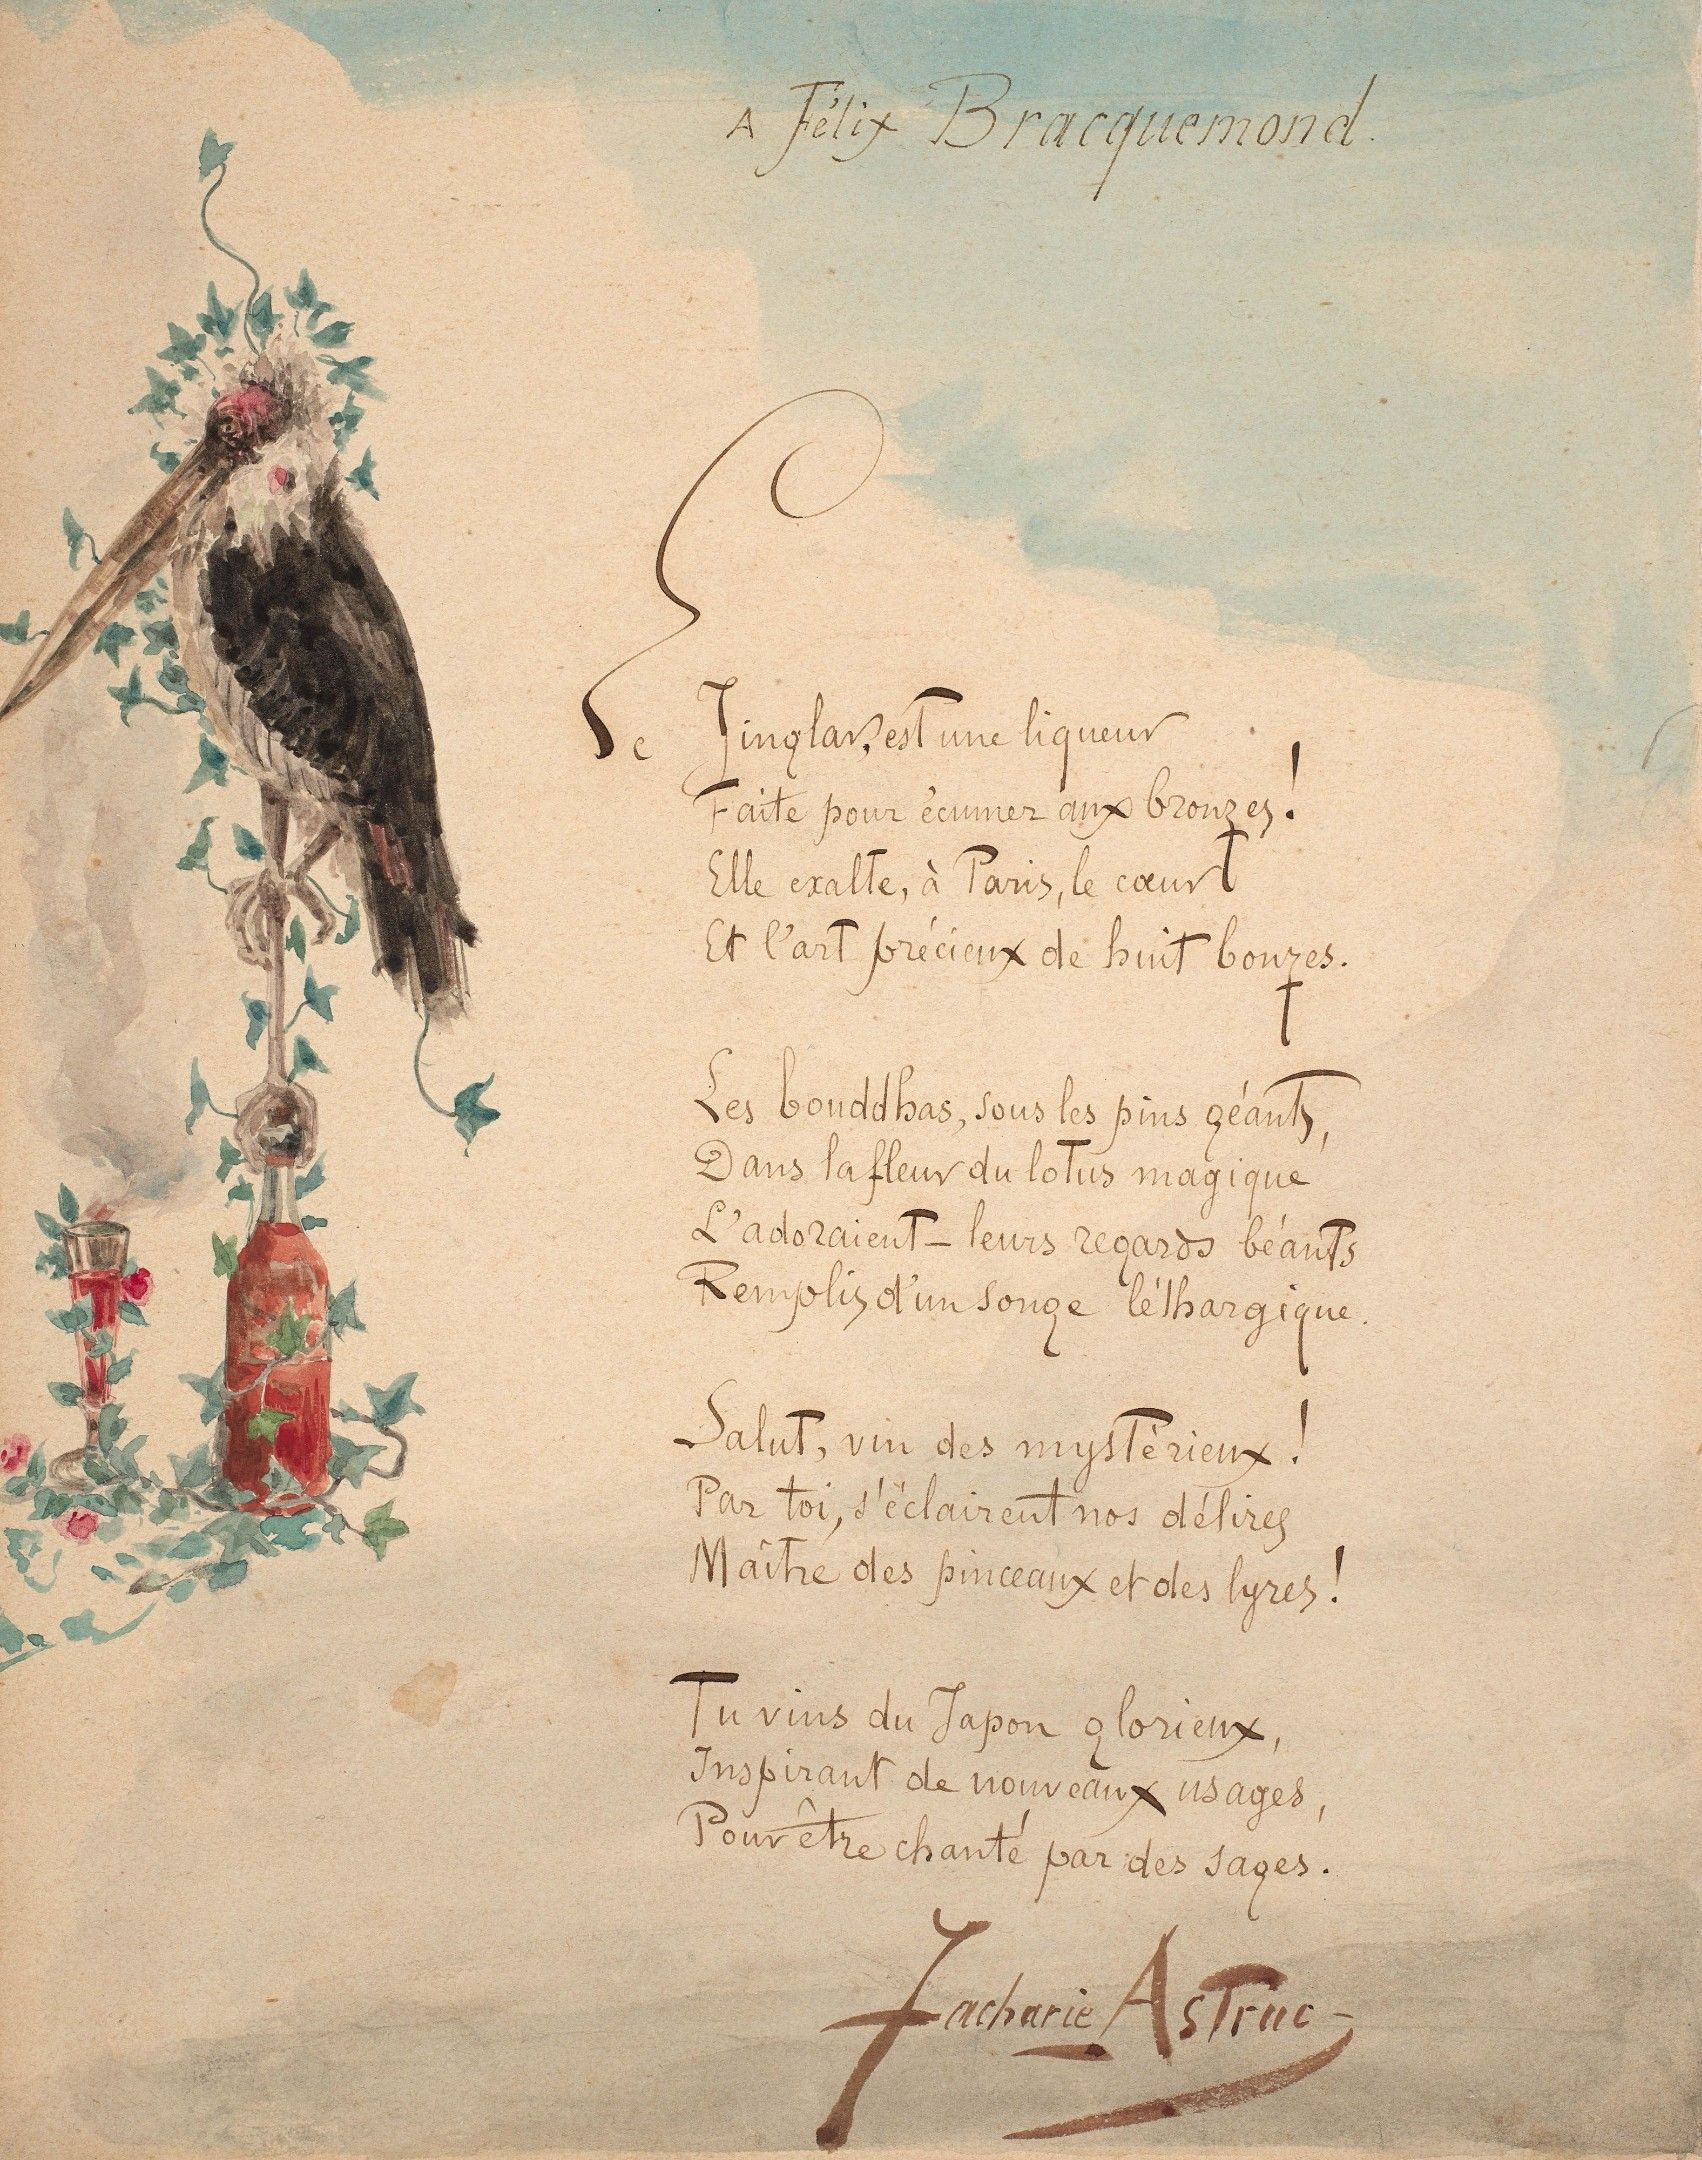 A Félix Bracquemond.
Le Jinglar, est une liqueur
Faite pour écumer aux bronzes!
Elle exalte, à Paris, le cœur
Et l'art précieux de huit bonzes.
Les bouddhas, sous les pins géants,
Dans la fleur du lotus magique
L'adoraient – leurs regards béants
Remplis d'un songe léthargique.
Salut, vin des mystérieux!
Par toi, s'éclairent nos délires
Maître des pinceaux et des lyres!
Tu vins du Japon glorieux,
Inspirant de nouveaux usages,
Pour être chanté par des sages.
Zacharie Astruc –